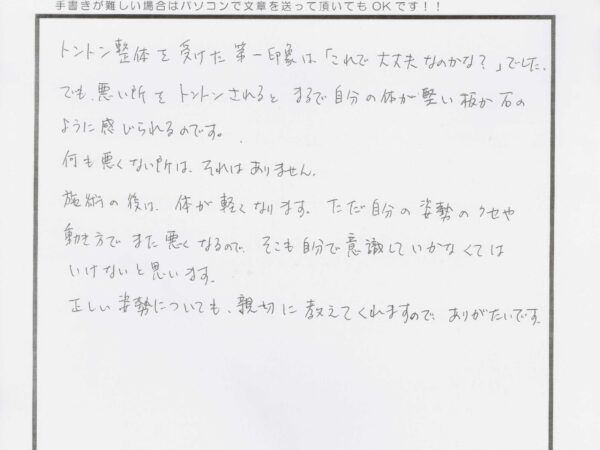 手書きが難しい場合はパソコンで文章を送って頂いてもOKです！！
トントン整体を受けた第一印象は「これで大丈夫なのかな？」でした。
でも、悪い所をトントンされると まるで自分の体が堅い板か石の
ように感じられるのです。
何も悪くない所は、それはありません。
施術の後は、体が軽くなります。ただ自分の姿勢のクセや
動き方でまた悪くなるので、そこも自分で意識していかなくては
いけないと思います。
正しい姿勢についても、親切に教えてくれますので、ありがたいです。